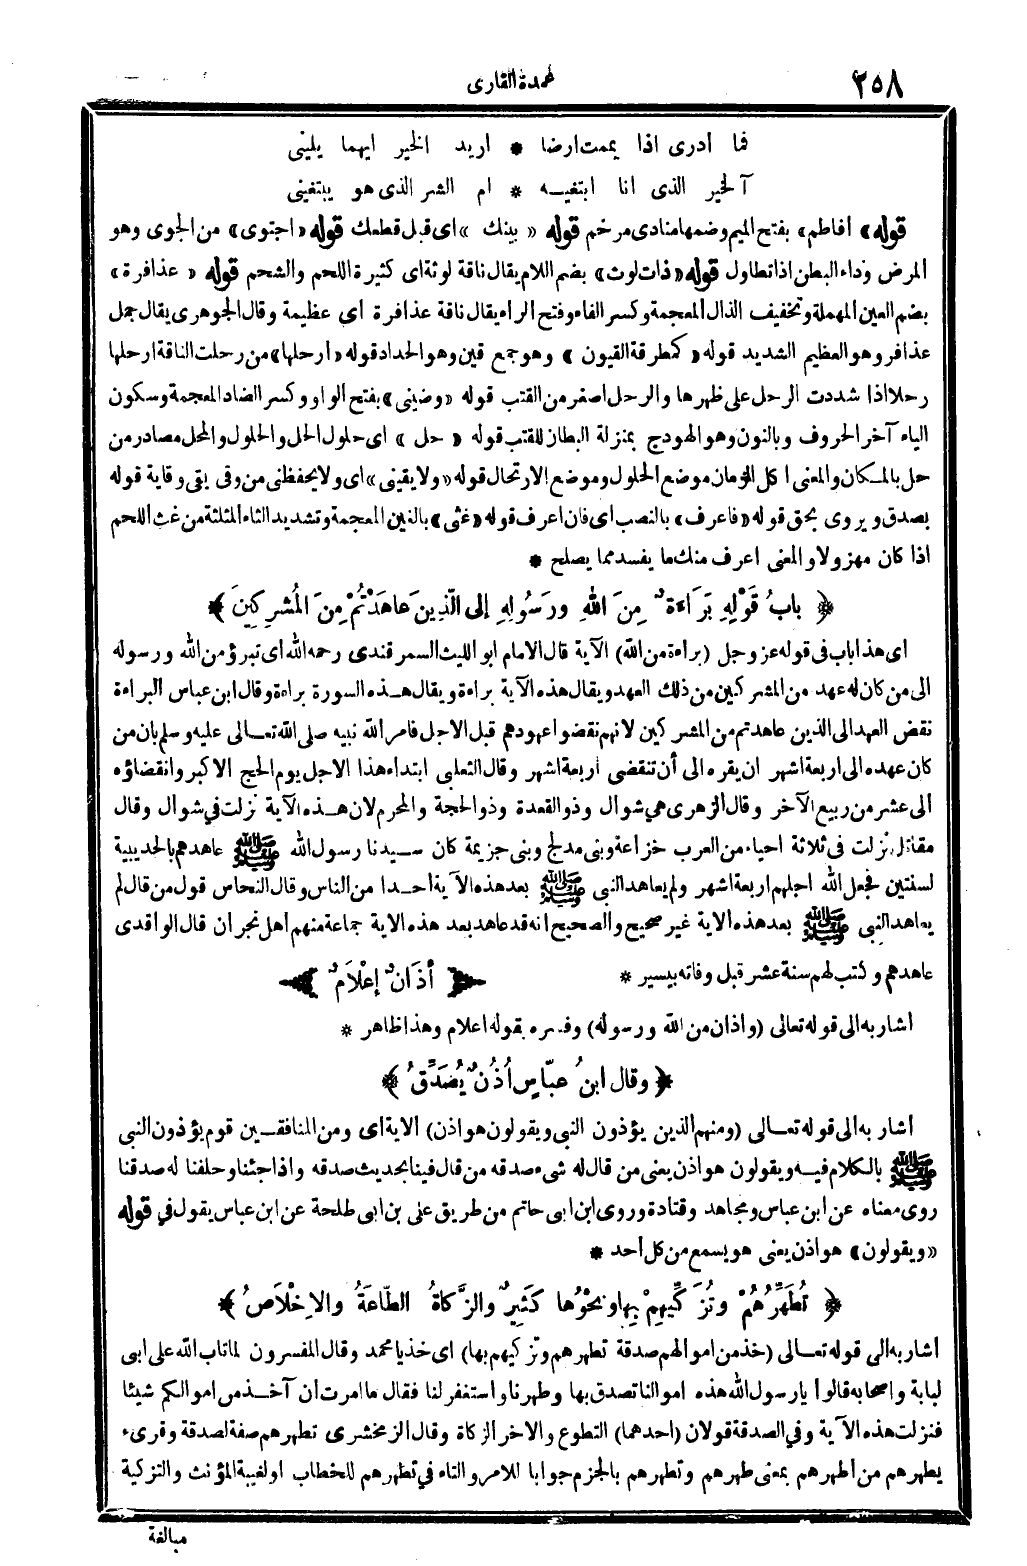 ٢٥٨ عمدة القارى
فما أدرى اذا يممت ارضا * اريد الخير ايهما يلينى
آلخير الذى انا ابتغيه * ام الشر الذى هو يبتغينى
قوله» أفاطم» بفتح الميم وضمها منادى مرخم قوله « بينك » اى قبل قطعك قوله «اجتوى» من الجوى وهو
المرض وداء البطن اذا تطاول قوله «ذات لوث» بضم اللام يقال ناقة لوثة اى كثيرة اللحم والشحم قوله « عذافرة»
بضم العين المهملة وتخفيف الذال المعجمة وكسر الفاء وفتح الراء يقال ناقة عذافرة اى عظيمة وقال الجوهرى يقال جمل
عذافر وهو العظيم الشديد قوله « كمطرقة القيون » وهو جمع قين وهو الحداد قوله «ارحلها» من رحلت الناقة ارحلها
رحلا اذا شددت الرحل على ظهرها والرحل اصغر من القتب قوله «وضينى» بفتح الواو وكسر الضاد المعجمة وسكون
الياء آخر الحروف وبالنون وهو الهودج بمنزلة البطان للقتب قوله « حل » اى حلول الحل والحلول والمحل مصادر من
حل بالمكان والمعنى اكل الزمان موضع الحلول وموضع الارتحال قوله «ولا يقينى» اى ولا يحفظنى من وقى يقى وقاية قوله
بصدق ويروى بحق قوله «فاعرف» بالنصب اى فان اعرف قوله «غثى» بالغين المعجمة وتشديد الثاء المثلثة من غث اللحم
اذا كان مهزولا والمعنى اعرف منك ما يفسد مما يصلح *
﴿ بابُ قَوْلِهِ بَرَاءَةٌ مِنَ اللهِ ورَسُولِهِ إلى الّذِينَ عاهَدْتُمْ مِنَ المُشرِكِينَ ﴾
اى هذا باب فى قوله عز وجل (براءة من الله) الآية قال الامام ابو الليث السمرقندى رحمه الله اى تبرؤ من الله ورسوله
الى من كان له عهد من المشركين من ذلك العهد ويقال هذه الآية براءة ويقال هذه السورة براءة وقال ابن عباس البراءة
نقض العهد الى الذين عاهدتم من المشركين لانهم نقضوا عهودهم قبل الاجل فامر الله نبيه صلى الله تعالى عليه وسلم بان من
كان عهده الى اربعة اشهر ان يقره الى أن تنقضى أربعة اشهر وقال الثعلبى ابتداء هذا الاجل يوم الحج الاكبر وانقضاؤه
الى عشر من ربيع الآخر وقال الزهرى هى شوال وذو القعدة وذو الحجة والمحرم لان هذه الآية نزلت فى شوال وقال
مقاتل نزلت فى ثلاثة احياء من العرب خزاعة وبنى مدلج وبنى جزيمة كان سيدنا رسول الله ﷺ عاهدهم بالحديبية
لسنتين فجعل الله اجلهم اربعة اشهر ولم يعاهد النبى ﷺ بعد هذه الآية أحدا من الناس وقال النحاس قول من قال لم
يعاهد النبى ﷺ بعد هذه الآية غير صحيح والصحيح انه قد عاهد بعد هذه الاية جماعة منهم أهل نجران قال الواقدى
عاهدهم وكتب لهم سنة عشر قبل وفاته بيسير * ﴿ أذَانٌ إعْلَامٌ ﴾
أشار به الى قوله تعالى (وأذان من الله ورسوله) وفسره بقوله اعلام وهذا ظاهر *
﴿ وقال ابنُ عبّاسٍ أُذُنٌ يُصَدِّقُ ﴾
أشار به الى قوله تعالى (ومنهم الذين يؤذون النبى ويقولون هو اذن) الاية اى ومن المنافقين قوم يؤذون النبى
ﷺ بالكلام فيه ويقولون هو اذن يعنى من قال له شىء صدقه من قال فينا بحديث صدقه واذا جئنا وحلفنا له صدقنا
روى معناه عن ابن عباس ومجاهد وقتادة وروى ابن ابى حاتم من طريق على بن ابى طلحة عن ابن عباس يقول فى قوله
«ويقولون» هو اذن يعنى هو يسمع من كل أحد *
﴿ تُطَهِّرُهُمْ وتُزَكِّيهِمْ بِها ونحْوُها كَثِيرٌ والزَّكاةُ الطّاعَةُ والإِخْلَاصُ ﴾
أشار به الى قوله تعالى (خذ من اموالهم صدقة تطهرهم وتزكيهم بها) اى خذ يا محمد وقال المفسرون لما تاب الله على ابى
لبابة واصحابه قالوا يا رسول الله هذه اموالنا تصدق بها وطهرنا واستغفر لنا فقال ما امرت أن آخذ من اموالكم شيئا
فنزلت هذه الآية وفى الصدقة قولان (احدهما) التطوع والاخر الزكاة وقال الزمخشرى تطهرهم صفة لصدقة وقرىء
يطهرهم من أطهرهم بمعنى طهرهم وتطهرهم بالجزم جوابا للامر والتاء فى تطهرهم للخطاب او لغيبة المؤنث والتزكية
مبالغة